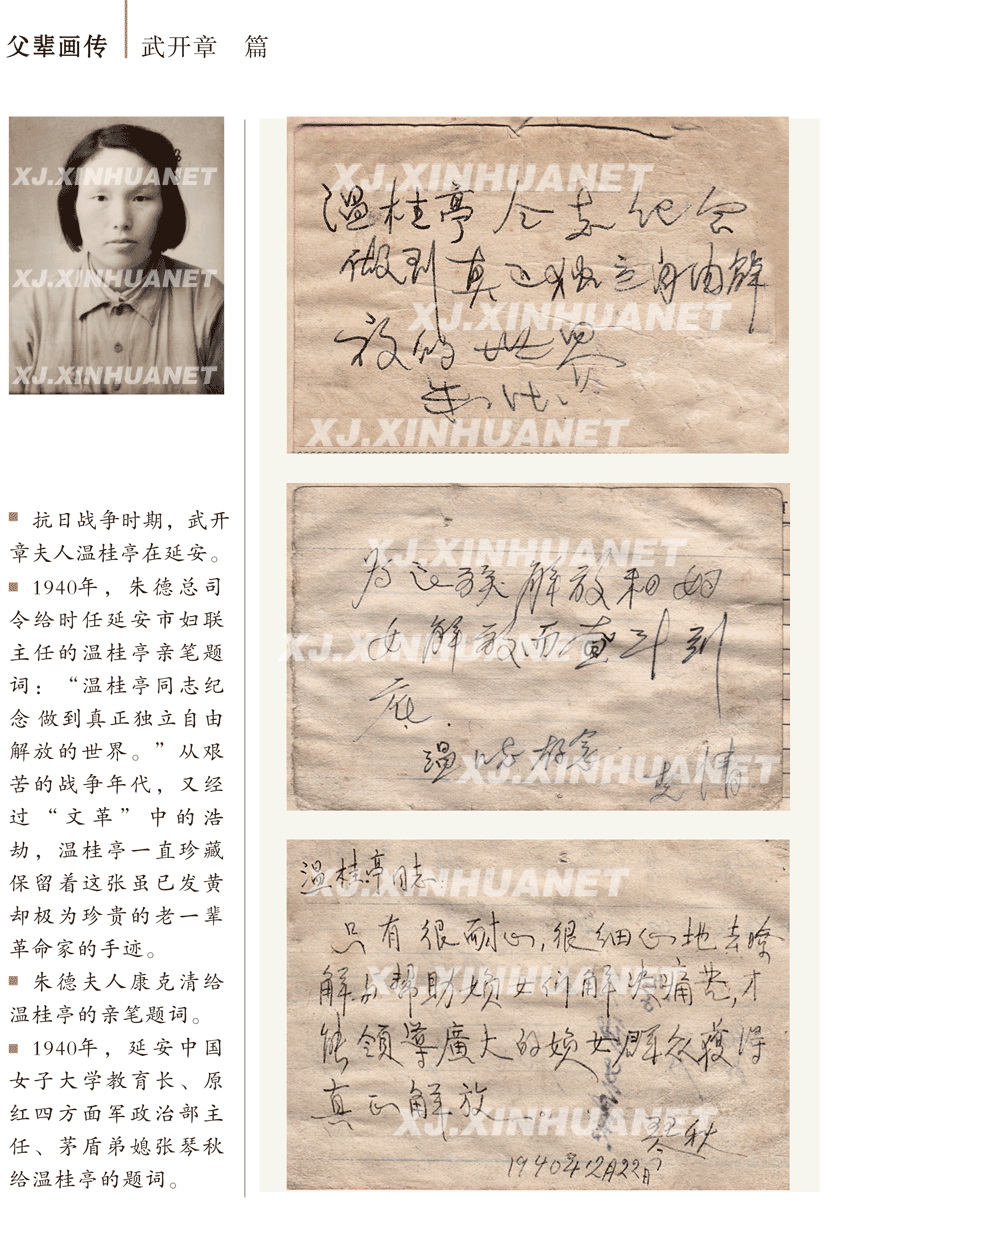 父辈画传 武开章 篇
XJ.XINHUANET
XJ.XINHUANET
XJ.XINHUANET
抗日战争时期，武开
章夫人温桂亭在延安。
1940年，朱德总司
令给时任延安市妇联
主任的温桂亭亲笔题
词：“温桂亭同志纪
念 做到真正独立自由
解放的世界。”从艰
苦的战争年代，又经
过“文革”中的浩
劫，温桂亭一直珍藏
保留着这张虽已发黄
却极为珍贵的老一辈
革命家的手迹。
朱德夫人康克清给
温桂亭的亲笔题词。
1940年，延安中国
女子大学教育长、原
红四方面军政治部主
任、茅盾弟媳张琴秋
给温桂亭的题词。
XJ.XINHUANET
温桂亭仝志纪念
做到真正独立自由解
放的世界
XJ.XINHUANET
朱德
XJ.XINHUANET
XJ.XINHUANET
为民族解放和妇
女解放而奋斗到
底.
XJ.XINHUANET
温同志存念
克清
XJ.XINHUANET
温桂亭同志
XJ.XINHUANET
只有很耐心,很细心地去瞭
解与帮助妇女们解决痛苦,才
XJ.XINHUANET
能領導廣大的妇女群众獲得
真正解放
XJ.XINHUANET
琴秋
1940年12月22日